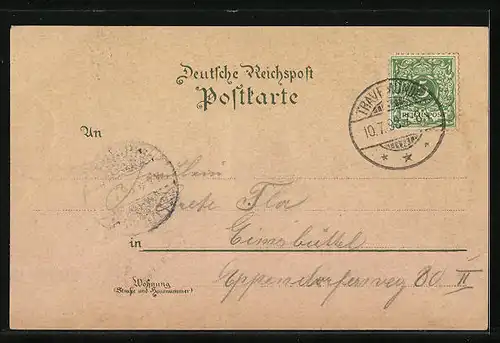 Deutsche Reichspost
Postkarte
TRAVEMÜNDE
10.7.
An
Fräulein
Grete Fla
in Eimsbüttel
Eppendorferweg 80 II
Wohnung
(Straße und Hausnummer)